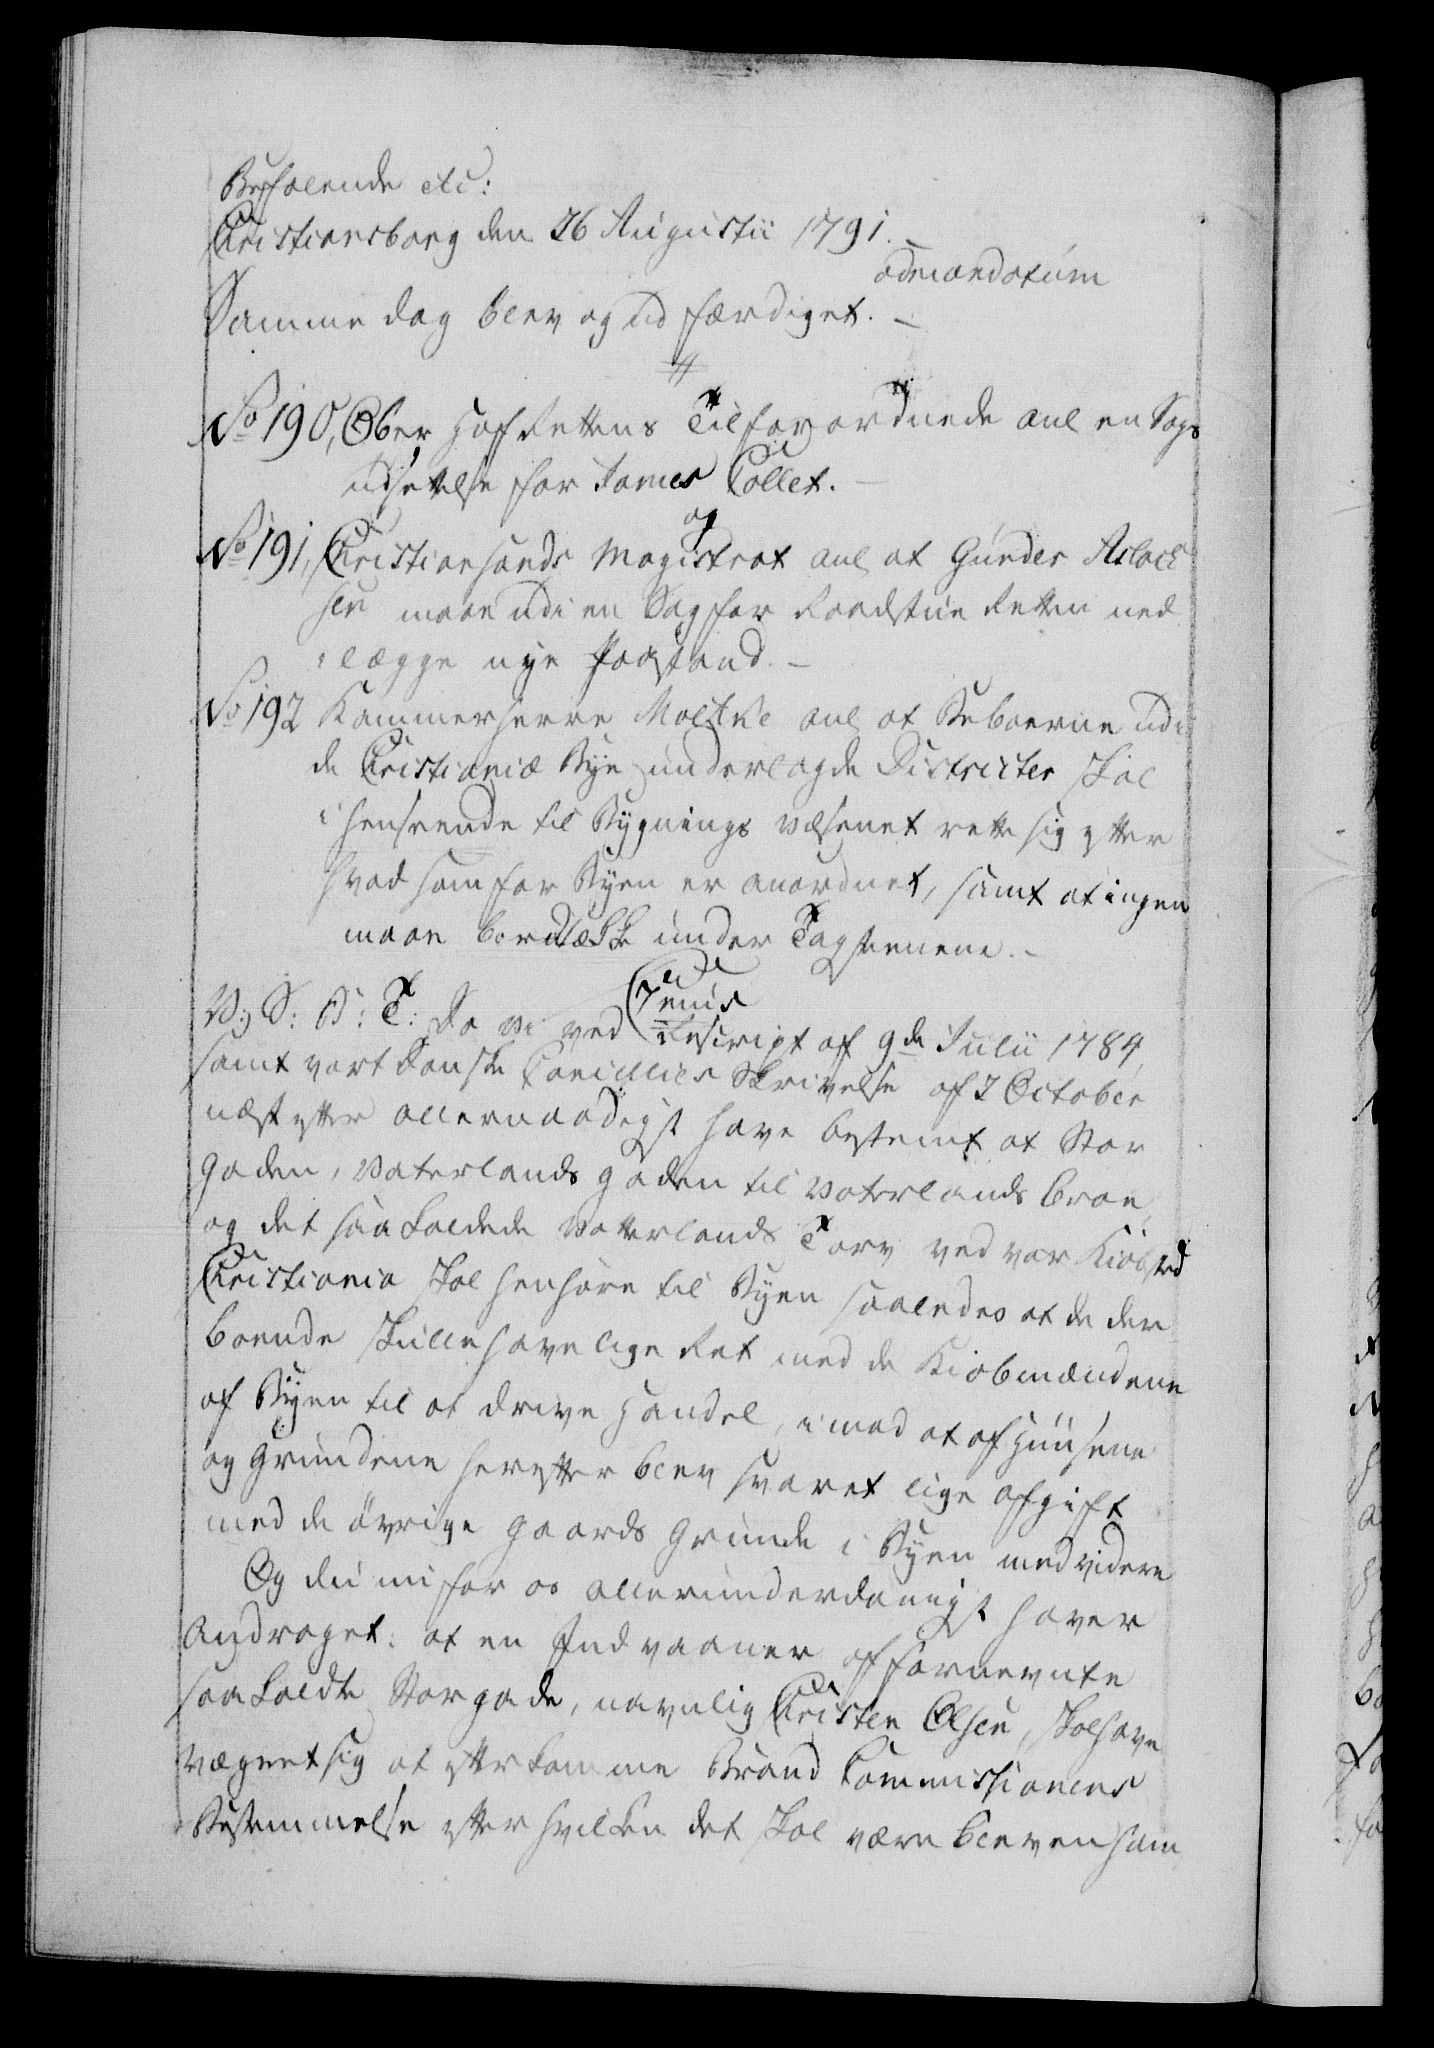 Befalende etc:
Christiansborg den 26 Augustii 1791. –
admandatum
Samme dag blev og ud færdiget. –
No 190, Ober Hof Rettens Tilforordnede anl en Sags
udsettelse for James Collet. –
No 191, Christiansands Magistrat anl at Gunder Aslach
sen maae udi en Sag for Raadstue Retten ned
lægge nye Paastand. –
No 192 Kammerherre Moltke anl at Beboerne udi
de Christianiæ Bye underlagde Districter skal
i henseende til Bygnings væsenet rette sig efter
hvad som for Byen er anordnet, samt at ingen
maae bordtække under Tagsteenene. –
V: S: B: T: Da Vi ved Rescript af 9de Julii 1784
samt vort Danske Cancellies Skrivelse af 2 October
næst efter allernaadigst have bestemt at Stor
Gaden, Vaterlands gaden til Vaterlands broe,
og det saa kaldede Vatterlands Torv ved vor Kiøbsted
Christiania skal henhøre til Byen saaledes at de der
boende skulle have lige Ret med de Kiøbmændene
af Byen til at drive Handel, imod at af Huusene
og Grundene herefter blev svaret lige afgift
med de øvrige Gaards Grunde i Byen med videre
Og du nu for os allerunderdanigst haver
Andraget: at en Indvaaner af fornevnte
saa kaldte Storgade, navnlig Christen Olsen, skal have
vægret sig at efterkomme Brand Commissionens
Bestemmelse efter hvilken det skal være bleven ham